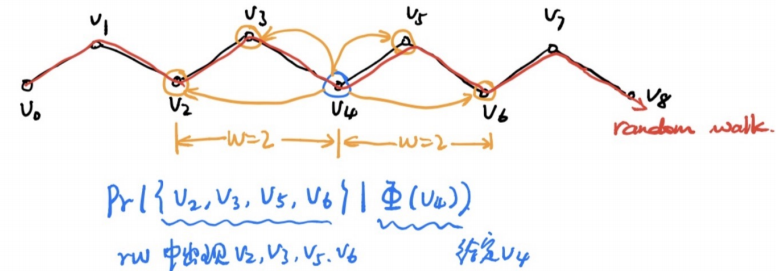 V₁ V₃ V₅ V₇
V₀ V₂ V₄ V₆ V₈
random walk.
w=2 w=2
Pr({V₂, V₃, V₅, V₆} | Φ(V₄))
rw 中出现 V₂, V₃, V₅, V₆ 给定 V₄